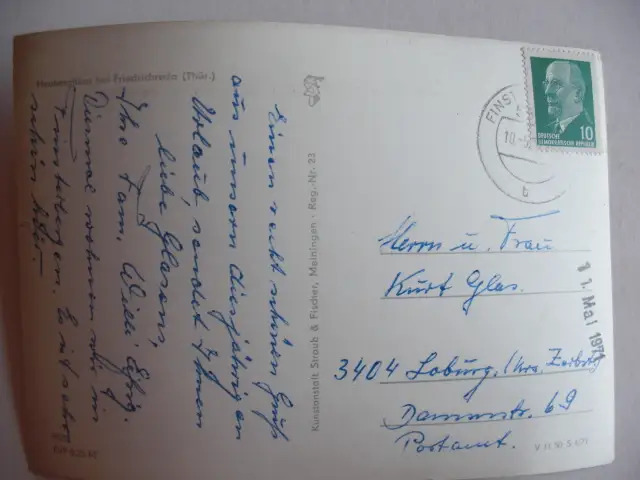 bei Friedrichroda (Thür.)
Einen recht schönen Gruß
aus unserm diesjährigen
Urlaub, sendet Ihnen
liebe Glasens,
Ihre Fam. Willi
Diesmal wohnen wir in
Finsterbergen. Es ist sehr
schön hier.
Kunstanstalt Straub & Fischer, Meiningen · Reg.-Nr. 23
FINST
10
DEUTSCHE
DEMOKRATISCHE REPUBLIK
10
b
Herrn u. Frau
Kurt Glas.
11. Mai 1971
3404 Loburg, Krs. Zerbst
Dammstr. 69
Postamt.